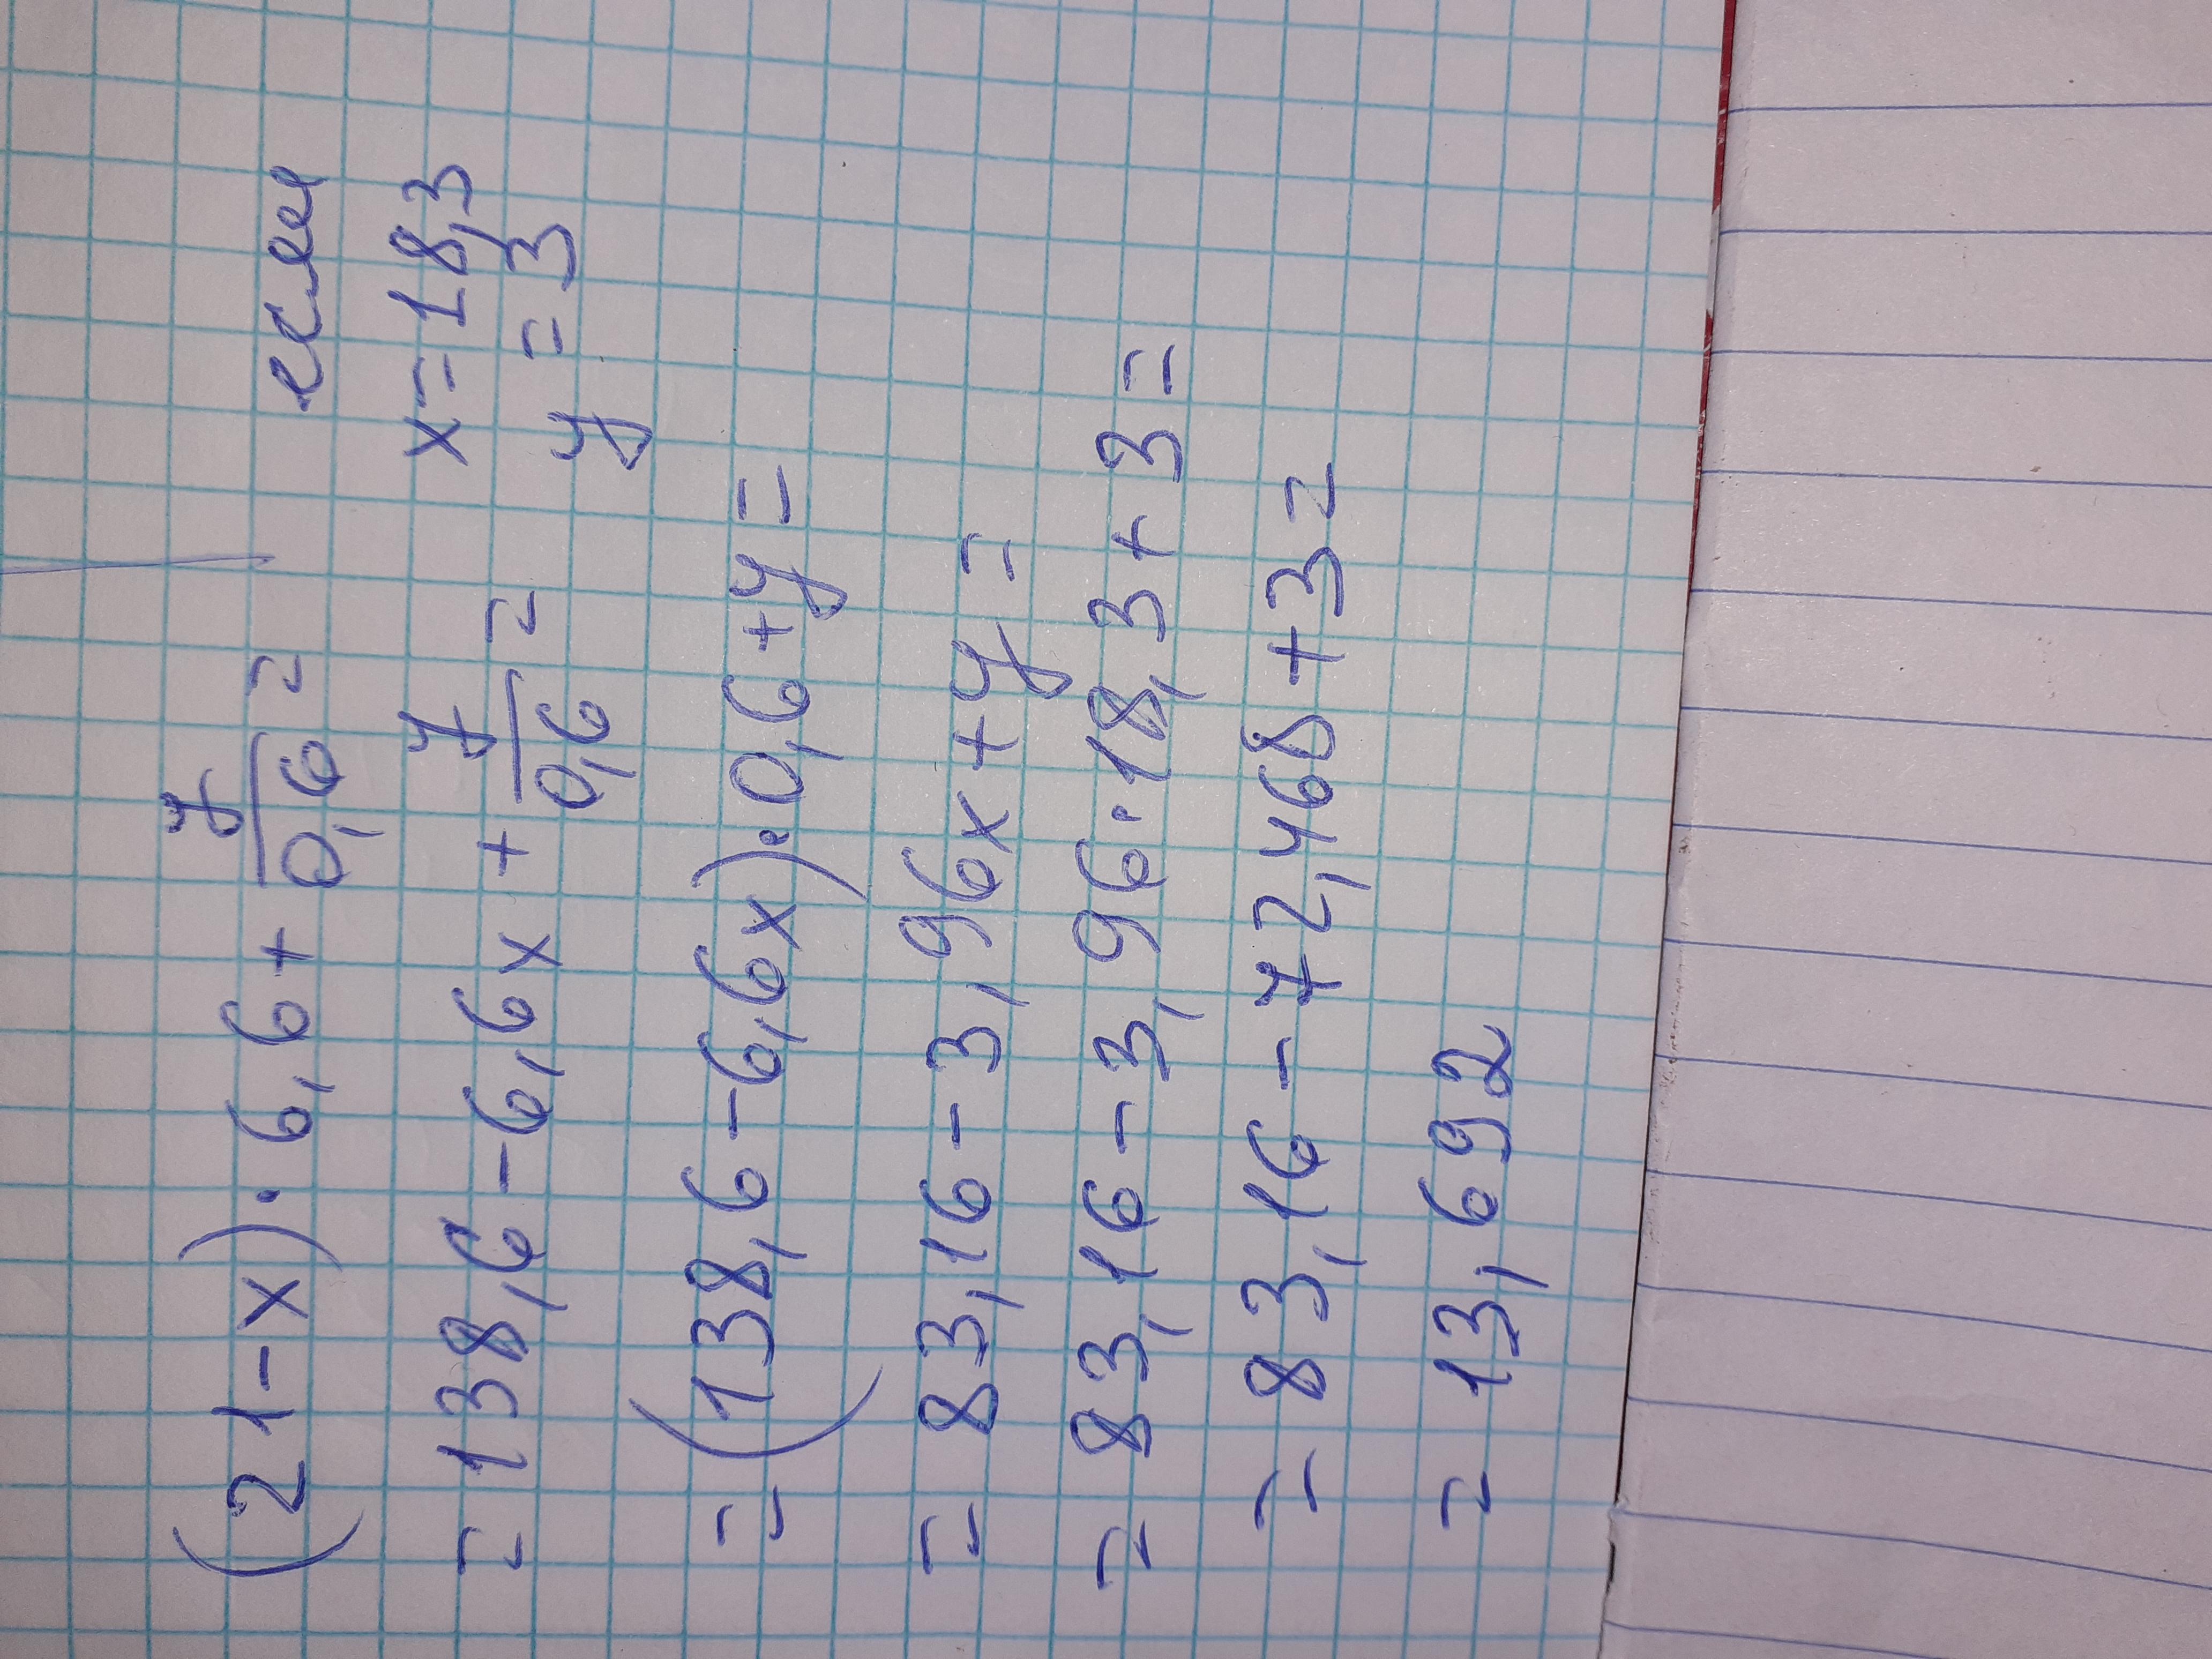 (21-x)·6,6+ y/0,6 = если
x=18,3
= 138,6-6,6x + y/0,6 = y=3
= (138,6-6,6x)·0,6+y=
= 83,16-3,96x+y=
= 83,16-3,96·18,3+3=
= 83,16-72,468+3=
= 13,692